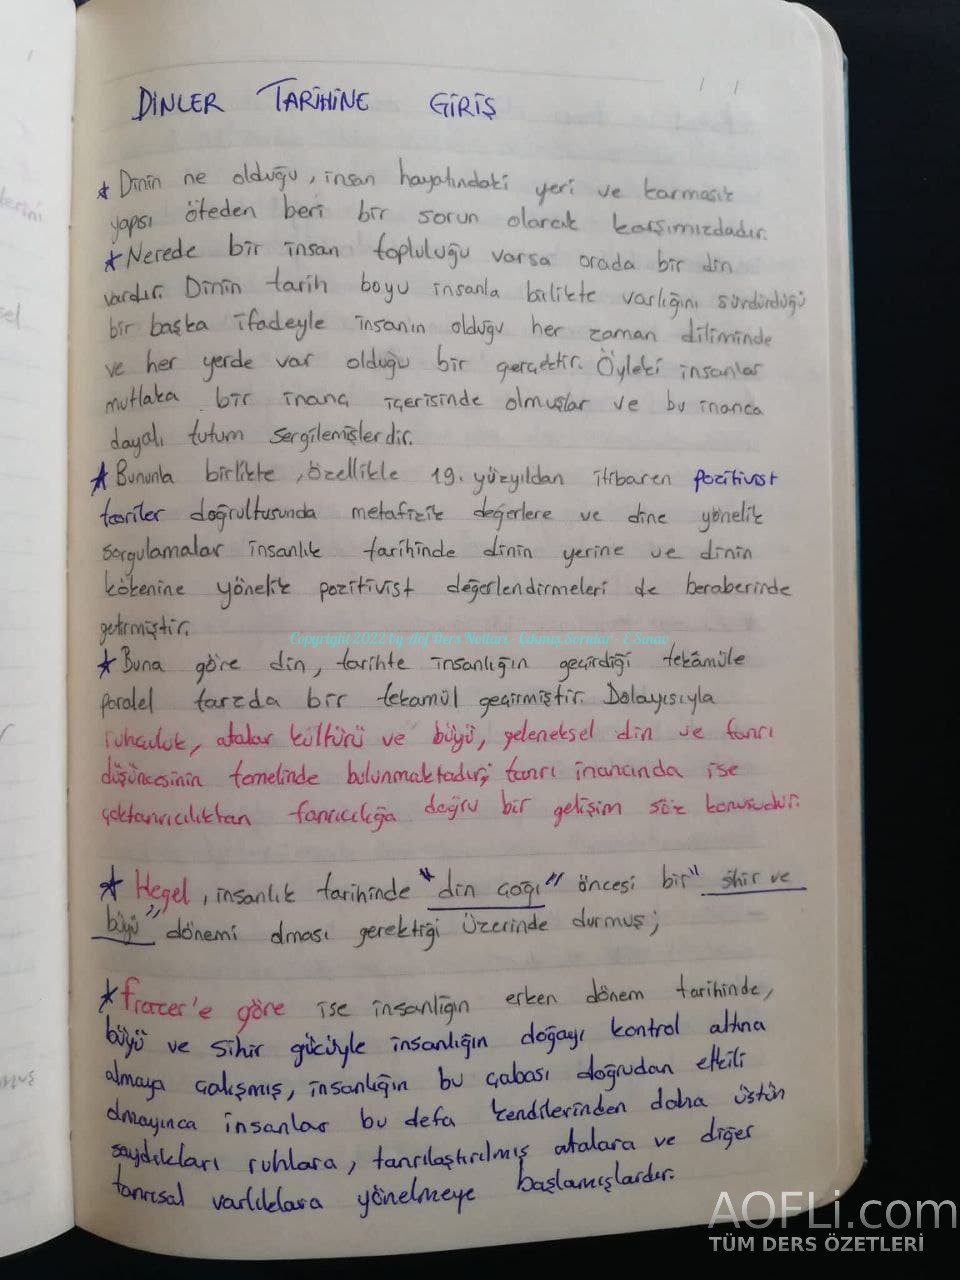 DİNLER TARİHİNE GİRİŞ
* Dinin ne olduğu, insan hayatındaki yeri ve karmaşık
yapsı öteden beri bir sorun olarak karşımızdadır.
* Nerede bir insan topluluğu varsa orada bir din
vardır. Dinin tarih boyu insanla birlikte varlığını sürdürdüğü
bir başka ifadeyle insanın olduğu her zaman diliminde
ve her yerde var olduğu bir gerçektir. Öyleki insanlar
mutlaka bir inanç içerisinde olmuşlar ve bu inanca
dayalı tutum sergilemişlerdir.
* Bununla birlikte, özellikle 19. yüzyıldan itibaren pozitivist
teoriler doğrultusunda metafizik değerlere ve dine yönelik
sorgulamalar insanlık tarihinde dinin yerine ve dinin
kökenine yönelik pozitivist değerlendirmeleri de beraberinde
getirmiştir.
Copyright 2022 by Aöf Ders Notları - Çıkmış Sorular - E Sınav
* Buna göre din, tarihte insanlığın geçirdiği tekâmüle
paralel tarzda bir tekamül geçirmiştir. Dolayısıyla
ruhçuluk, atalar kültürü ve büyü, geleneksel din ve tanrı
düşüncesinin temelinde bulunmaktadır; tanrı inancında ise
çoktanrıcılıktan tanrıcılığa doğru bir gelişim söz konusudur.
* Hegel, insanlık tarihinde "din çağı" öncesi bir "sihir ve
büyü" dönemi olması gerektiği üzerinde durmuş;
* Frazer'e göre ise insanlığın erken dönem tarihinde,
büyü ve sihir gücüyle insanlığın doğayı kontrol altına
almaya çalışmış, insanlığın bu çabası doğrudan etkili
olmayınca insanlar bu defa kendilerinden daha üstün
saydıkları ruhlara, tanrılaştırılmış atalara ve diğer
tanrısal varlıklara yönelmeye başlamışlardır.
AOFLi.com
TÜM DERS ÖZETLERİ